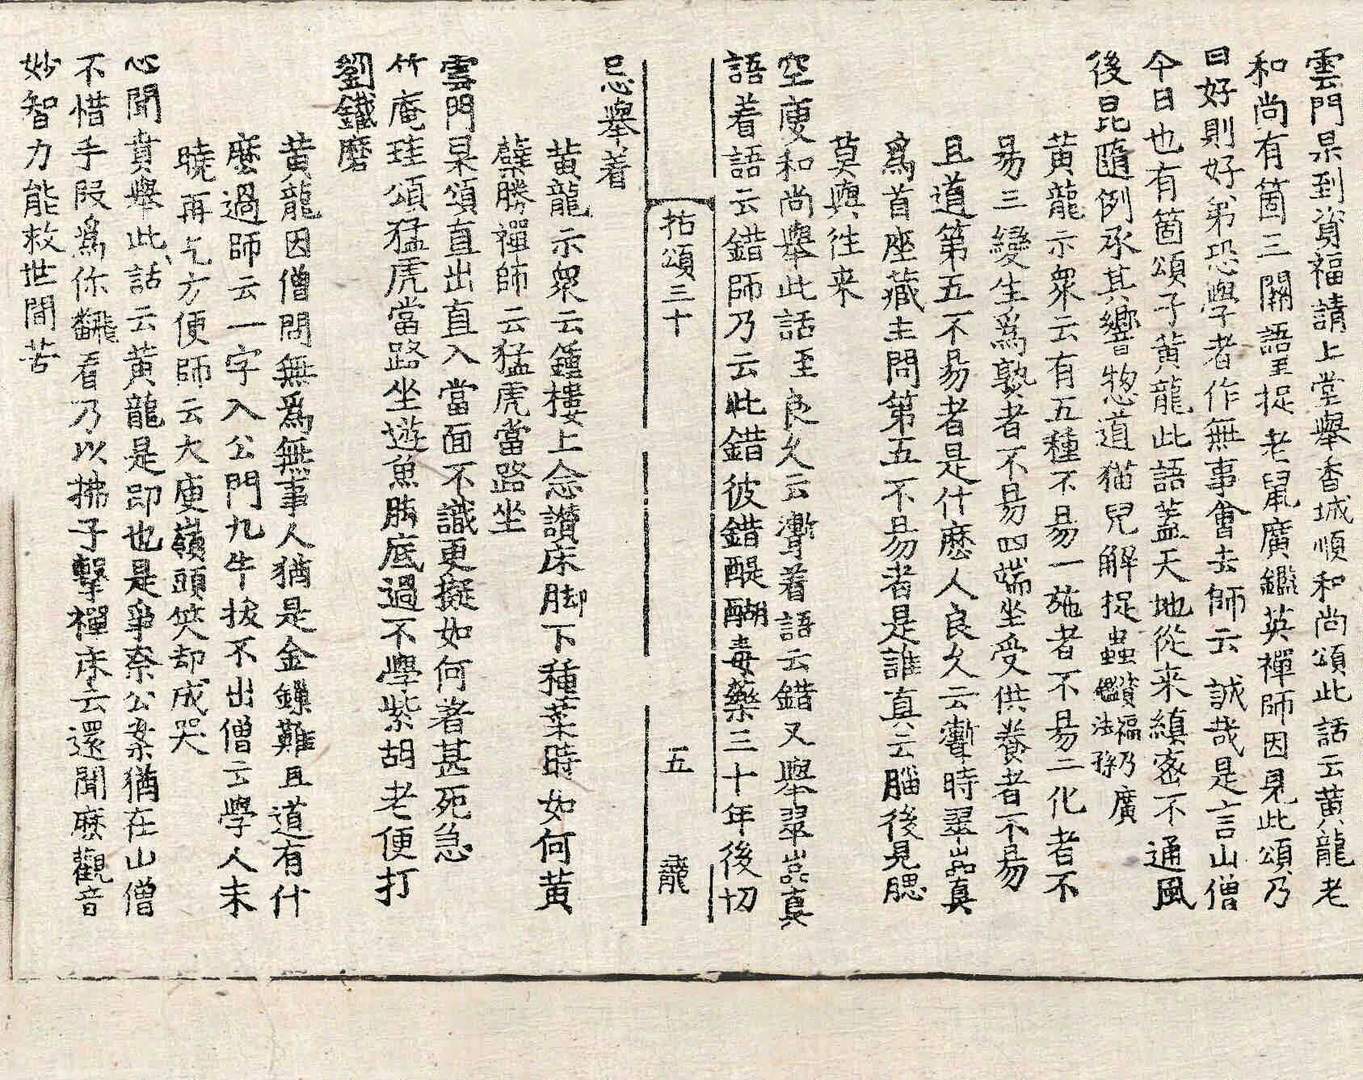 雲門杲到資福請上堂舉香城順和尚頌此話云黃龍老
和尚有箇三關語至捉老鼠廣鑑英禪師因見此頌乃
曰好則好第恐學者作無事會去師云誠哉是言山僧
今日也有箇頌子黃龍此語蓋天地從來縝密不通風
後昆隨例承其響惣道猫兒解捉蟲資福乃廣鑑法孫
黃龍示衆云有五種不易一施者不易二化者不
易三變生爲熟者不易四端坐受供養者不易
且道第五不易者是什麽人良久云聻時翠嵓真
爲首座藏主問第五不易者是誰真云腦後見腮
莫與往来
空叟和尚舉此話至良久云聻着語云錯又舉翠嵓真
語着語云錯師乃云此錯彼錯醍醐毒藥三十年後切
拈頌三十 五 龍
忌舉着
黃龍示衆云鍾樓上念讃床脚下種菜時如何黃
蘗勝禪師云猛虎當路坐
雲門杲頌直出直入當面不識更擬如何著甚死急
竹庵珪頌猛虎當路坐遊魚脚底過不學紫胡老便打
劉鐵磨
黃龍因僧問無爲無事人猶是金鏁難且道有什
麽過師云一字入公門九牛拔不出僧云學人未
曉再乞方便師云大庾嶺頭笑却成哭
心聞賁舉此話云黃龍是即也是爭奈公案猶在山僧
不惜手段爲你翻看乃以拂子擊禪床云還聞麽觀音
妙智力能救世間苦